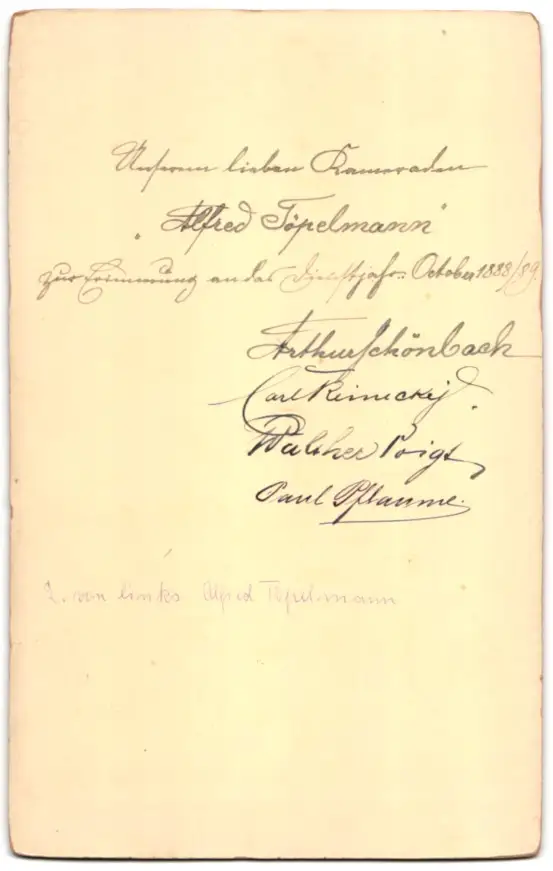 Unserem lieben Kameraden
"Alfred Töpelmann"
zur Erinnerung an das Dienstjahr: October 1888/89.
Arthur Schönbach
Carl Reinecke
Walther Voigt
Paul Pflaume.
2. von links Alfred Töpelmann